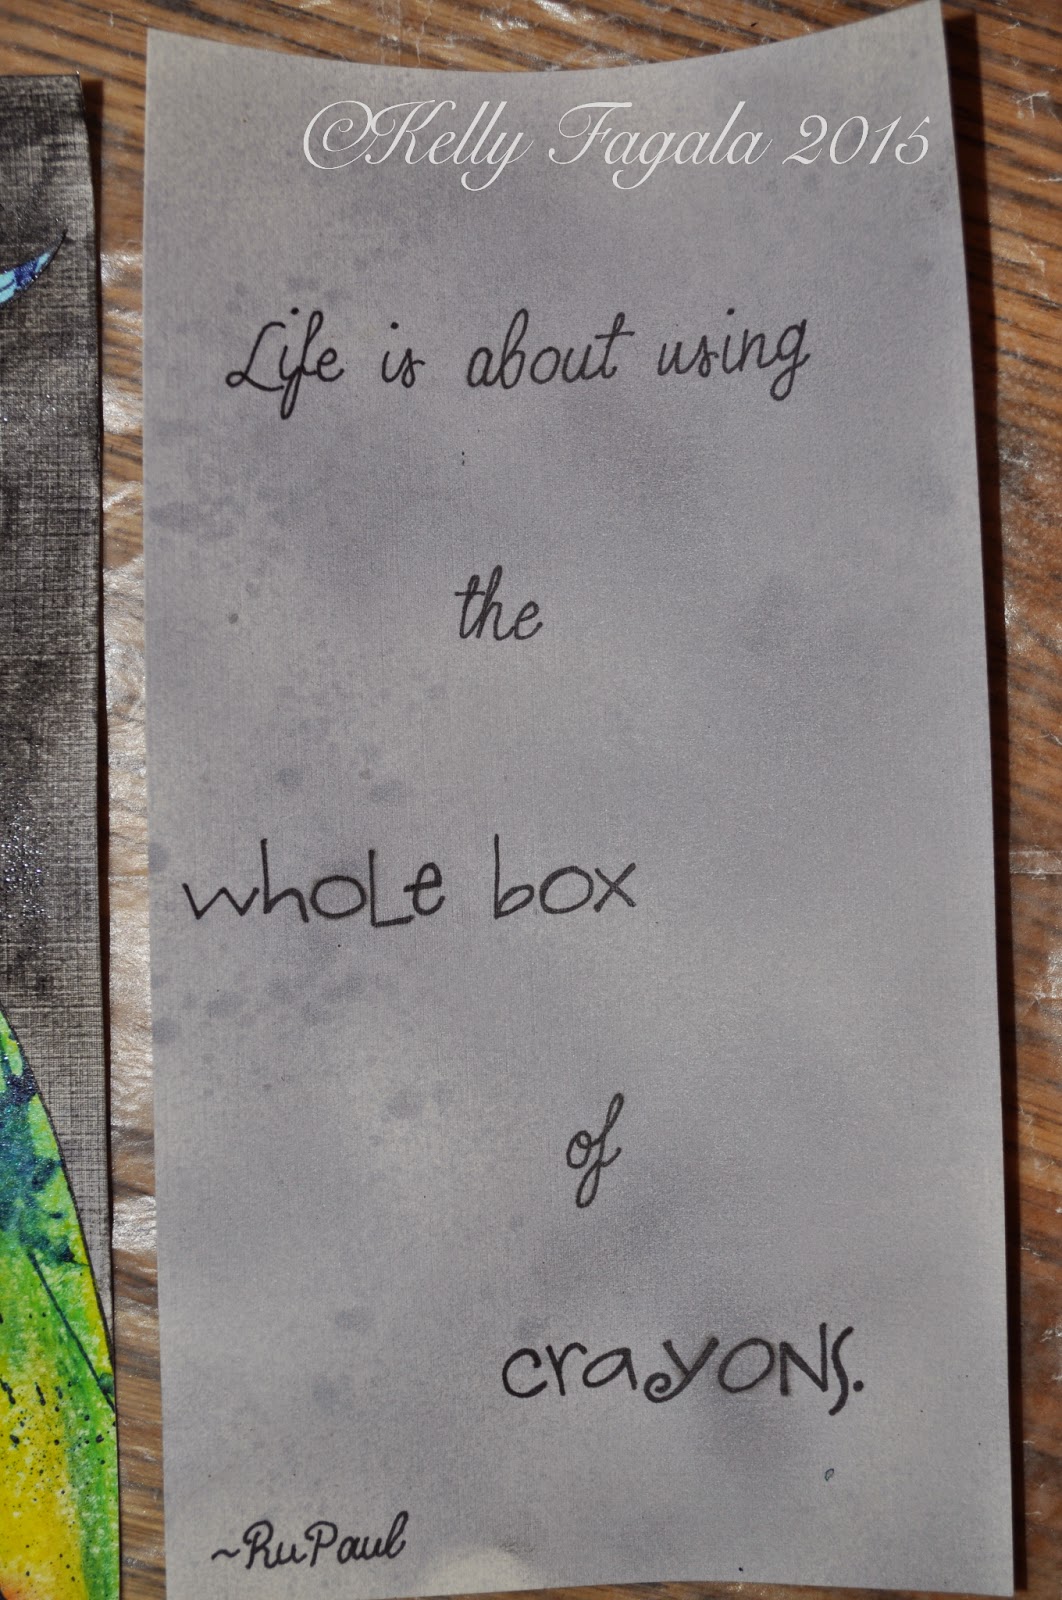 ©Kelly Fagala 2015
Life is about using
the
whole box
of
crayons.
~RuPaul